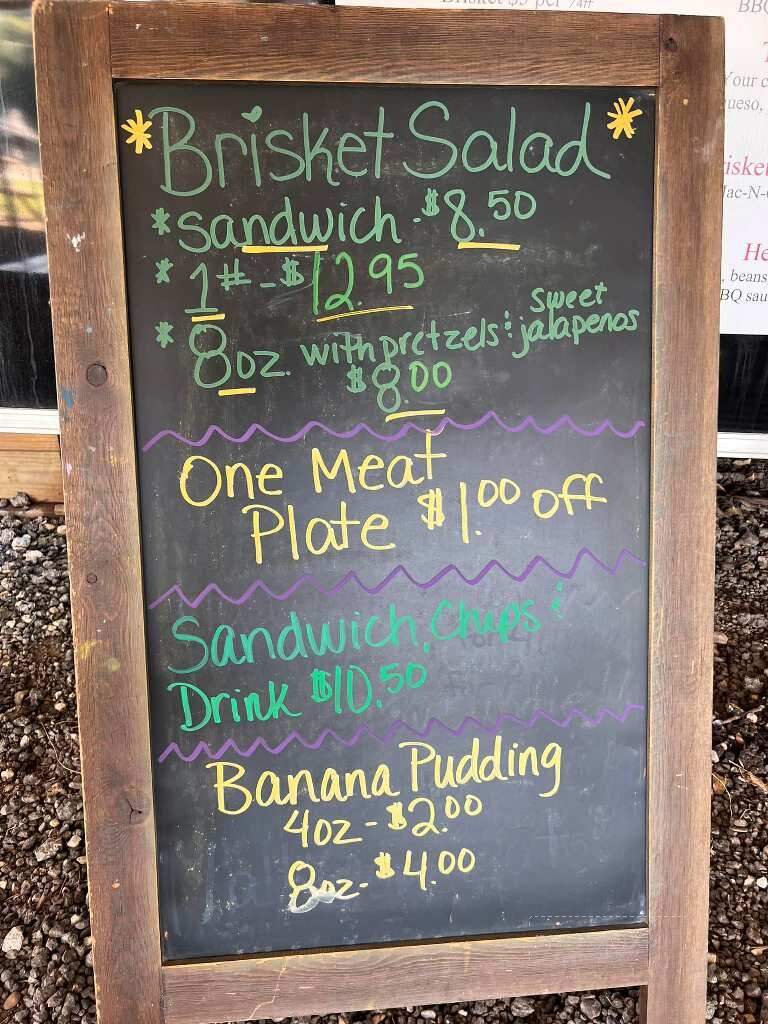 Brisket Salad
* Sandwich - $8.50
* 1# - $12.95
* 8oz. with pretzels & sweet jalapenos
$8.00
One Meat
Plate $1.00 off
Sandwich, Chips &
Drink $10.50
Banana Pudding
4oz - $2.00
8oz - $4.00
BBQ
ueso,
Jac-N-
He
, beans
BQ sau